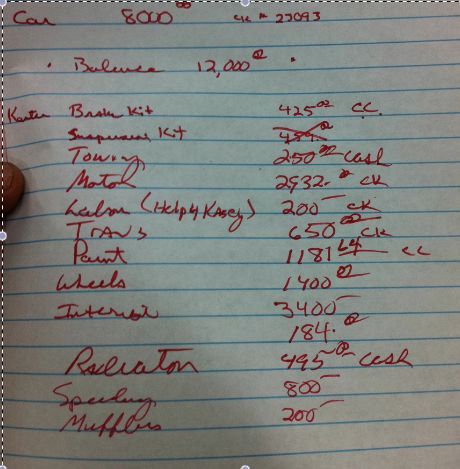 Car 8000.00 ck # 23093
• Balance 12,000.00 •
Brake Kit 425.00 CC.
Suspension Kit
Towing 250.00 cash
Motor 2932.00 ck
Labor (Help of Kasey) 200- ck
Trans 650.00 ck
Paint 1181.64 CC
Wheels 1400.00
Interior 3400-
184.00
Radiator 495.00 cash
800-
Mufflers 200-